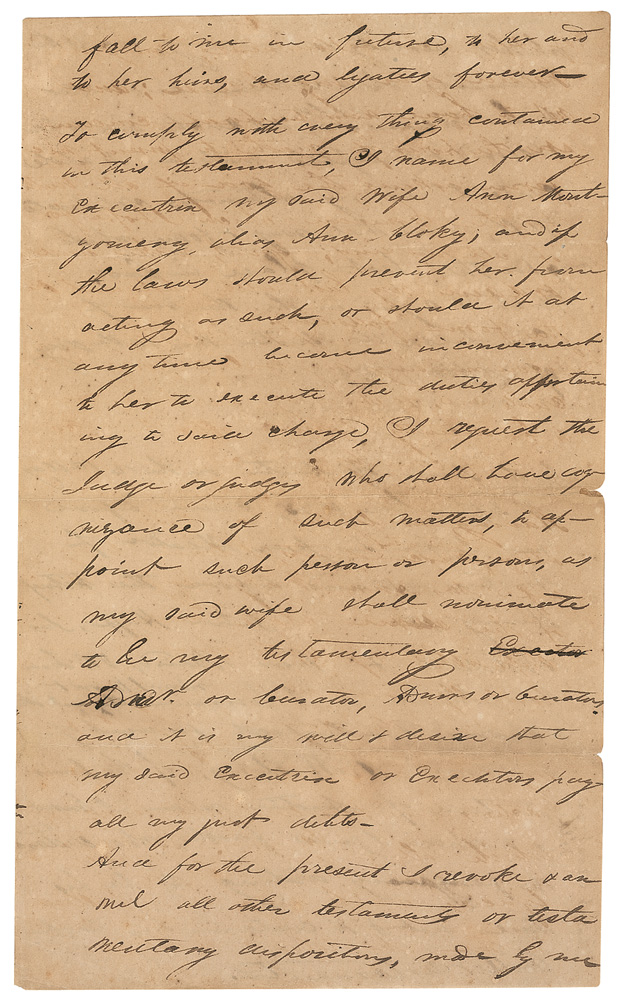 fall to me in future, to her and
to her heirs, and legatees forever—
To comply with every thing contained
in this testament, I name for my
Executrix my said Wife Ann Mont-
gomery, alias Ann Cloky; and if
the laws should prevent her from
acting as such, or should it at
any time become inconvenient
to her to execute the duties appertain
ing to said charge, I request the
Judge or judges who shall have cog-
nizance of such matters, to ap-
point such person or persons, as
my said wife shall nominate
to be my testamentary Executor
Admr. or Curator, Admrs or Curators.
and it is my will & desire that
my said Executrix or Executors pay
all my just debts—
And for the present I revoke & an
nul all other testaments or testa
mentary dispositions, made by me